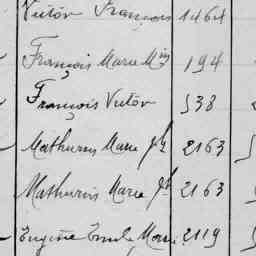 Victor François 1464
François Marie Min 194
François Victor 538
Mathurin Marie Jh 2163
Mathurin Marie Jh 2163
Eugène Emile Marie 2119